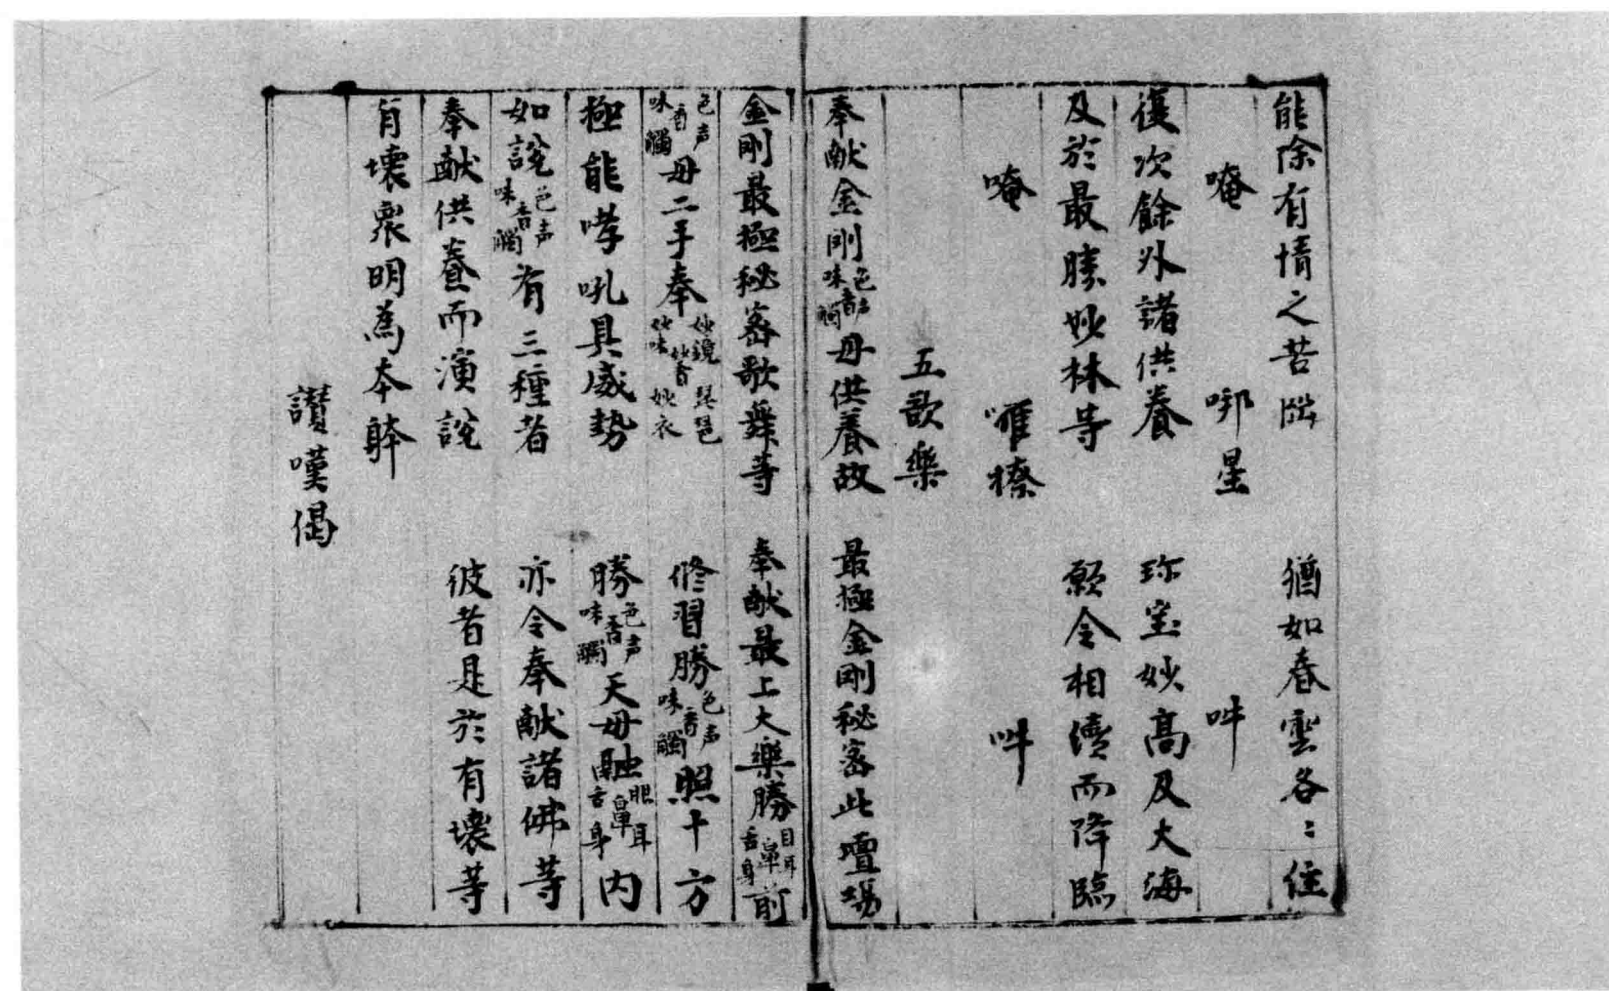 能除有情之苦惱 猶如春雲各〻住
唵 㖿星 吽
復次餘外諸供養 珎宝妙高及大海
及於最勝妙林等 願令相續而降臨
唵 嚾 吽
五歌樂
奉献金剛色声香味觸母供養故 最極金剛秘密此壇場
金剛最極秘密歌舞等 奉献最上大樂勝目耳鼻舌身前
色声香味觸母二手奉妙鏡琵琶妙香妙味妙衣 修習勝色声香味觸照十方
極能哮吼具威勢 勝色声香味觸天母融眼耳鼻舌身內
如說色声香味觸有三種者 亦令奉献諸佛等
奉献供養而演說 彼者是於有壞等
有壞衆明為本躰
讃嘆偈